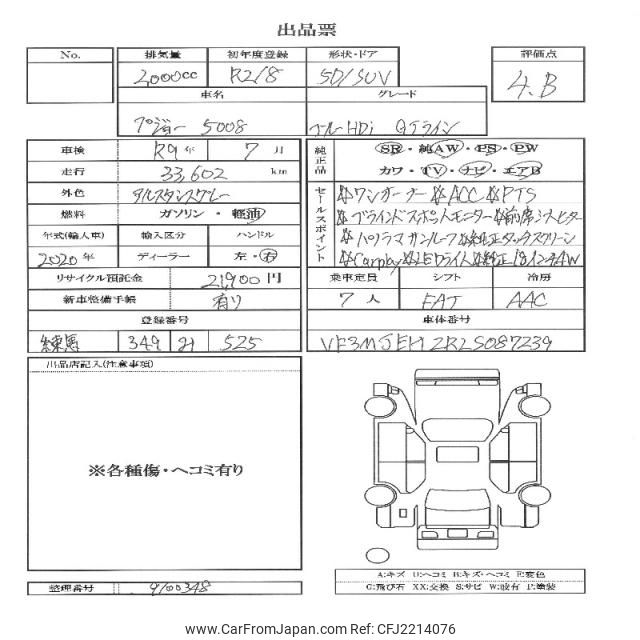 出品票
No. 排気量 初年度登録 形状・ドア 評価点
2,000cc R2/8 5D/SUV 4.B
車名 グレード
プジョー 5008 ブルーHDi GTライン
車検 R9年 7月
走行 33,602 km
外色
燃料 ガソリン・軽油
年式(輸入車) 輸入区分 ハンドル
2020年 ディーラー 左・右
リサイクル預託金 21,900円
新車整備手帳 有り
登録番号
練馬 349 525
純正品 SR・純AW・PS・PW
カワ・TV・ナビ・エアB
セールスポイント
※ワンオーナー ※ACC ※PTS
※ブラインドスポットモニター ※前席シートヒーター
※パノラマガンルーフ ※純正タッチスクリーン
※Carplay ※LEDライト ※純正18インチAW
乗車定員 シフト 冷房
7人 FAT AAC
車体番号
VF3MJEHZRLS087239
出品店記入(注意事項)
※各種傷・ヘコミ有り
整理番号 9100348
A:キズ U:ヘコミ B:キズ・ヘコミ E:変色
G:飛び石 XX:交換 S:サビ W:波有 P:塗装
www.CarFromJapan.com - CFJ2214076